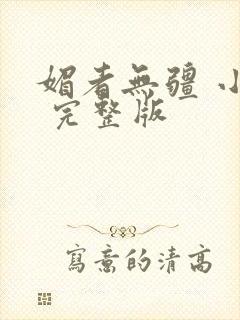 媚者無疆 小
完整版
寫意的清高